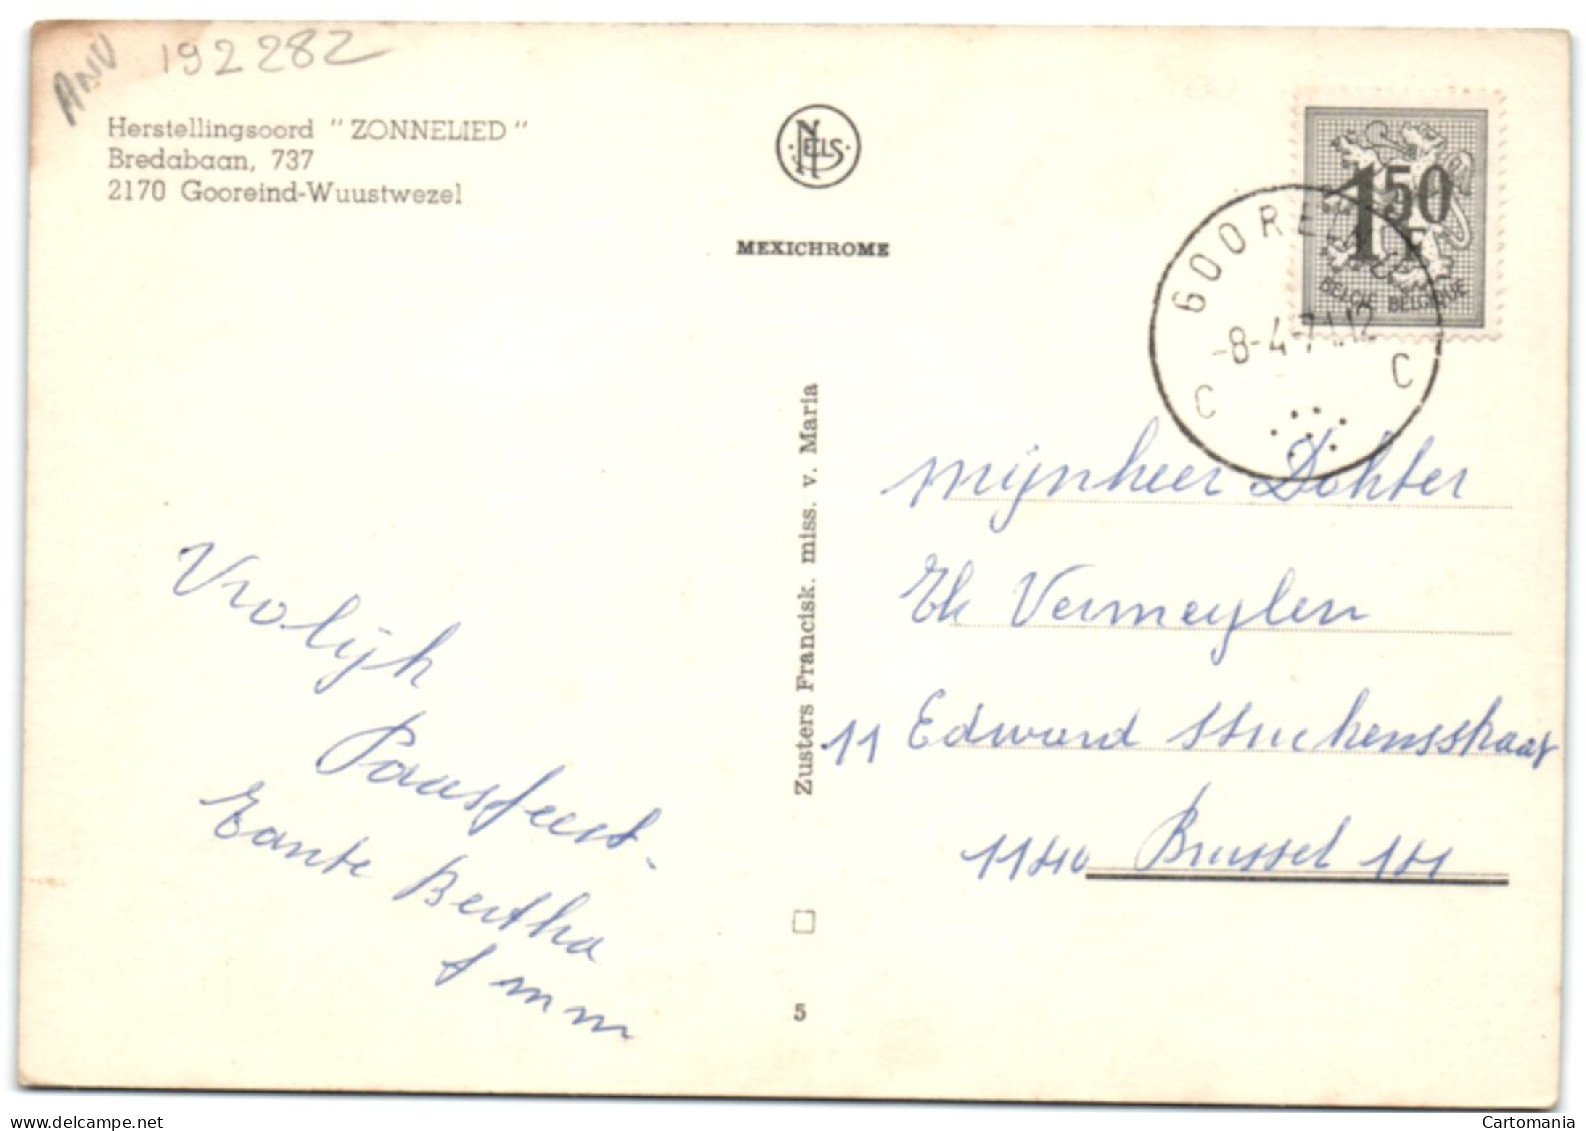 ANV 192282
Herstellingsoord "ZONNELIED"
Bredabaan, 737
2170 Gooreind-Wuustwezel
NELS
MEXICHROME
1 50
F
BELGIË BELGIQUE
GOOREI
-8-4-71.12
C C
Zusters Francisk. miss. v. Maria
5
Vrolijk
Paasfeest.
Tante Bertha
Mijnheer Dokter
Vermeylen
11 Edward Stuckensstraat
1140 Brussel 14
Cartomania